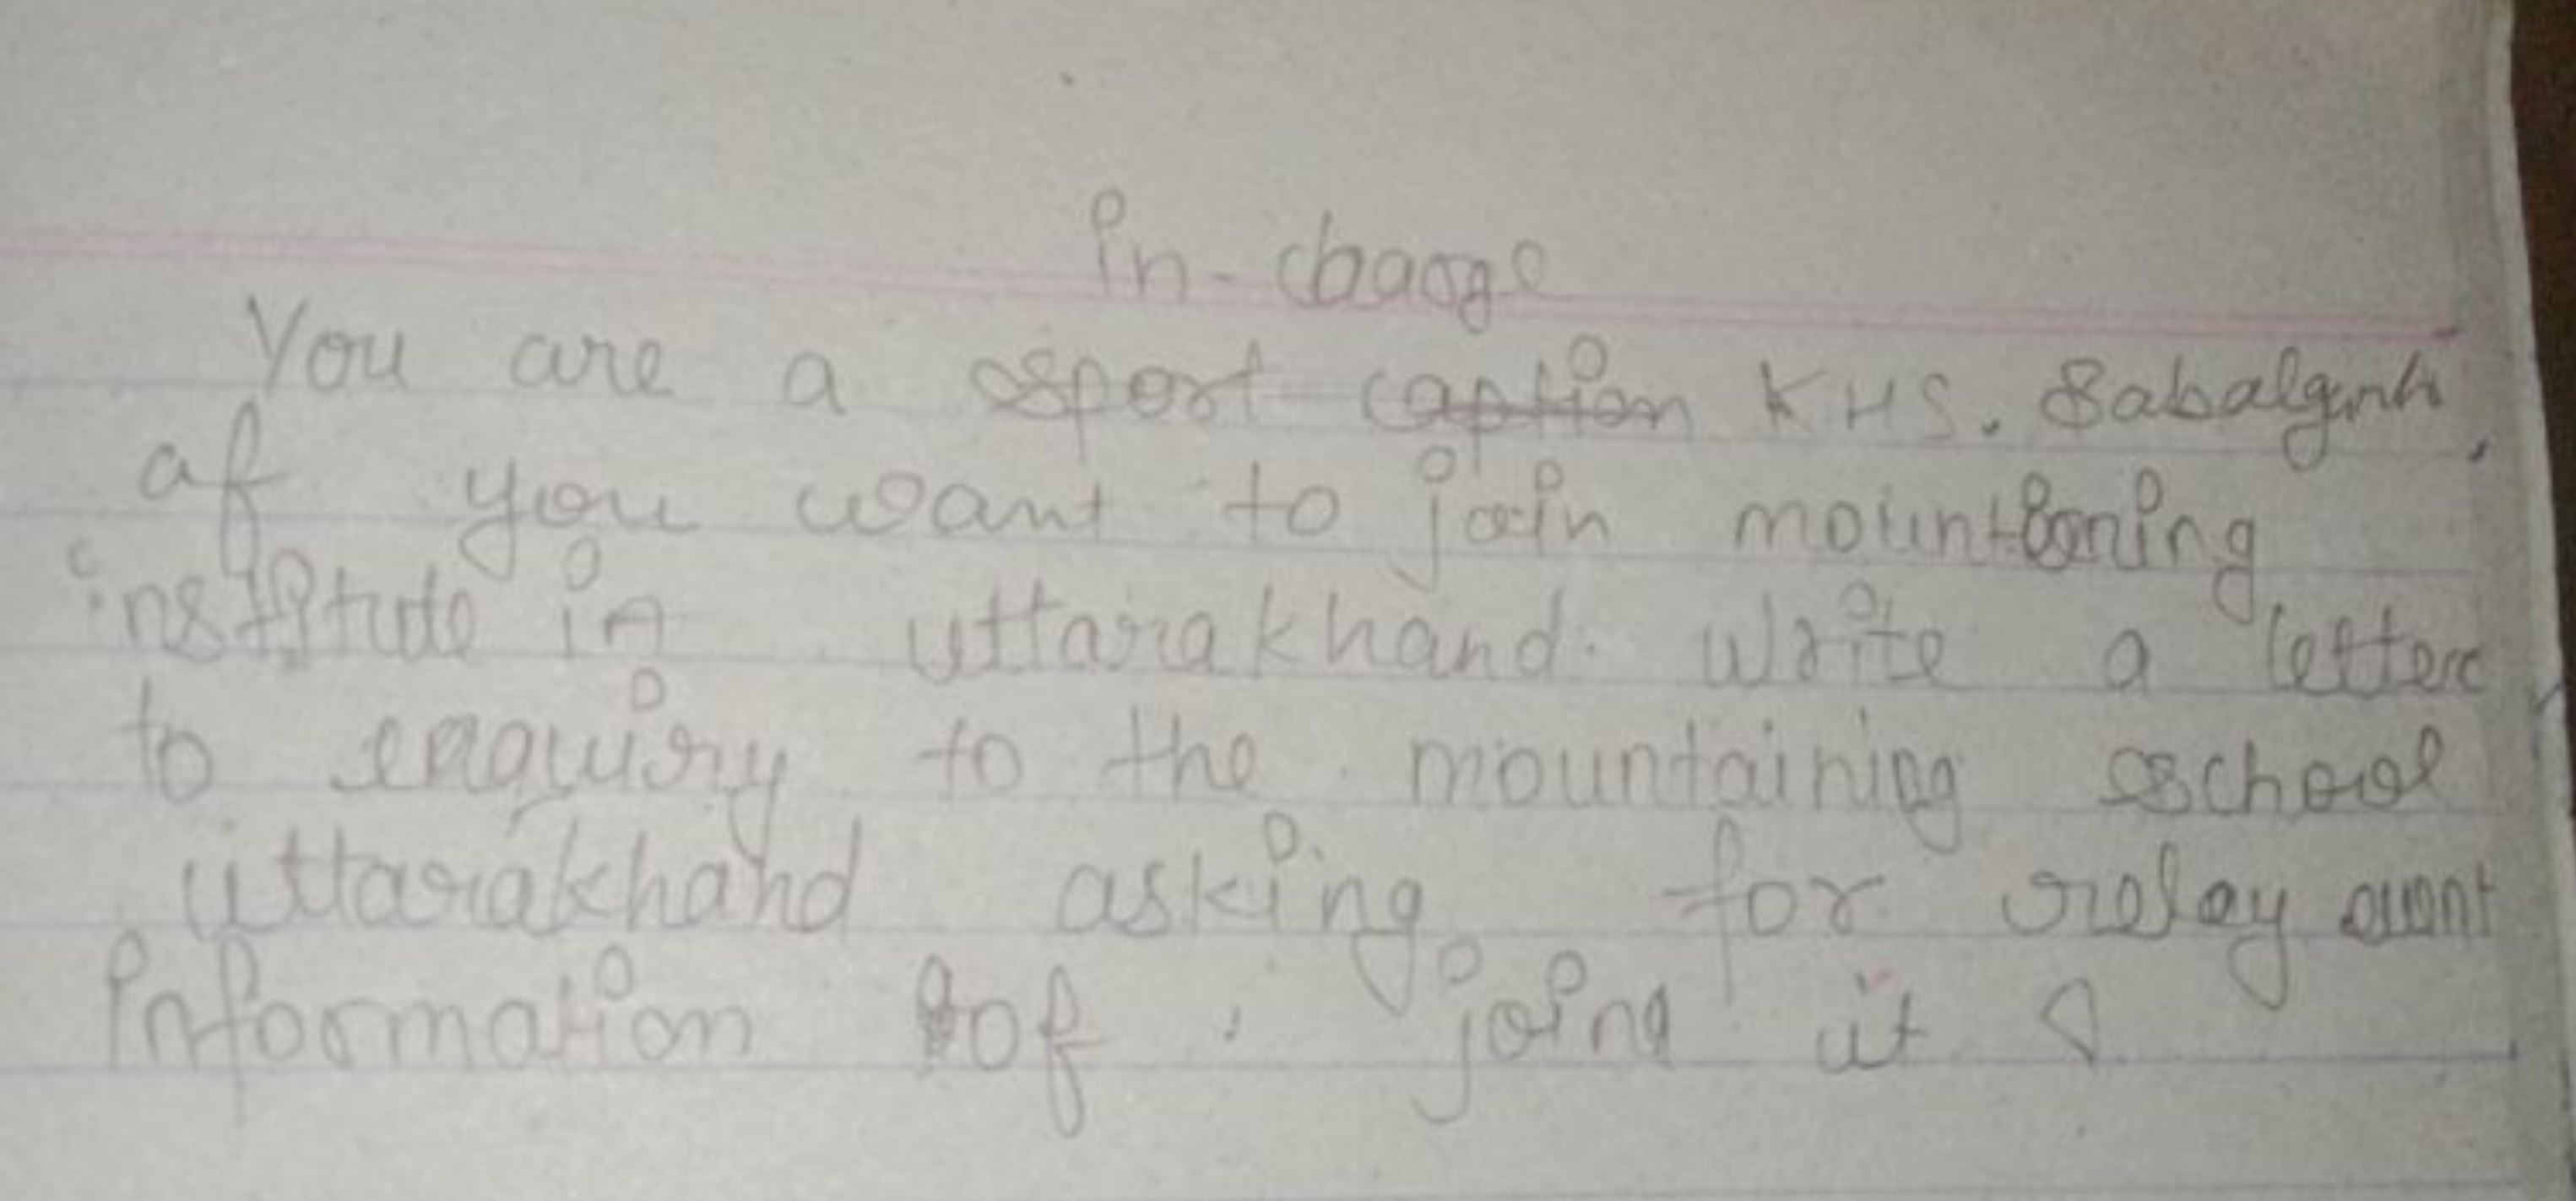 in-charge
You are a sport caption KHS. Sabalgarh,
of you want to join mountening
institute in uttarakhand. write a letter
to enquiry to the mountaining school
uttarakhand asking for relay
information of joing it